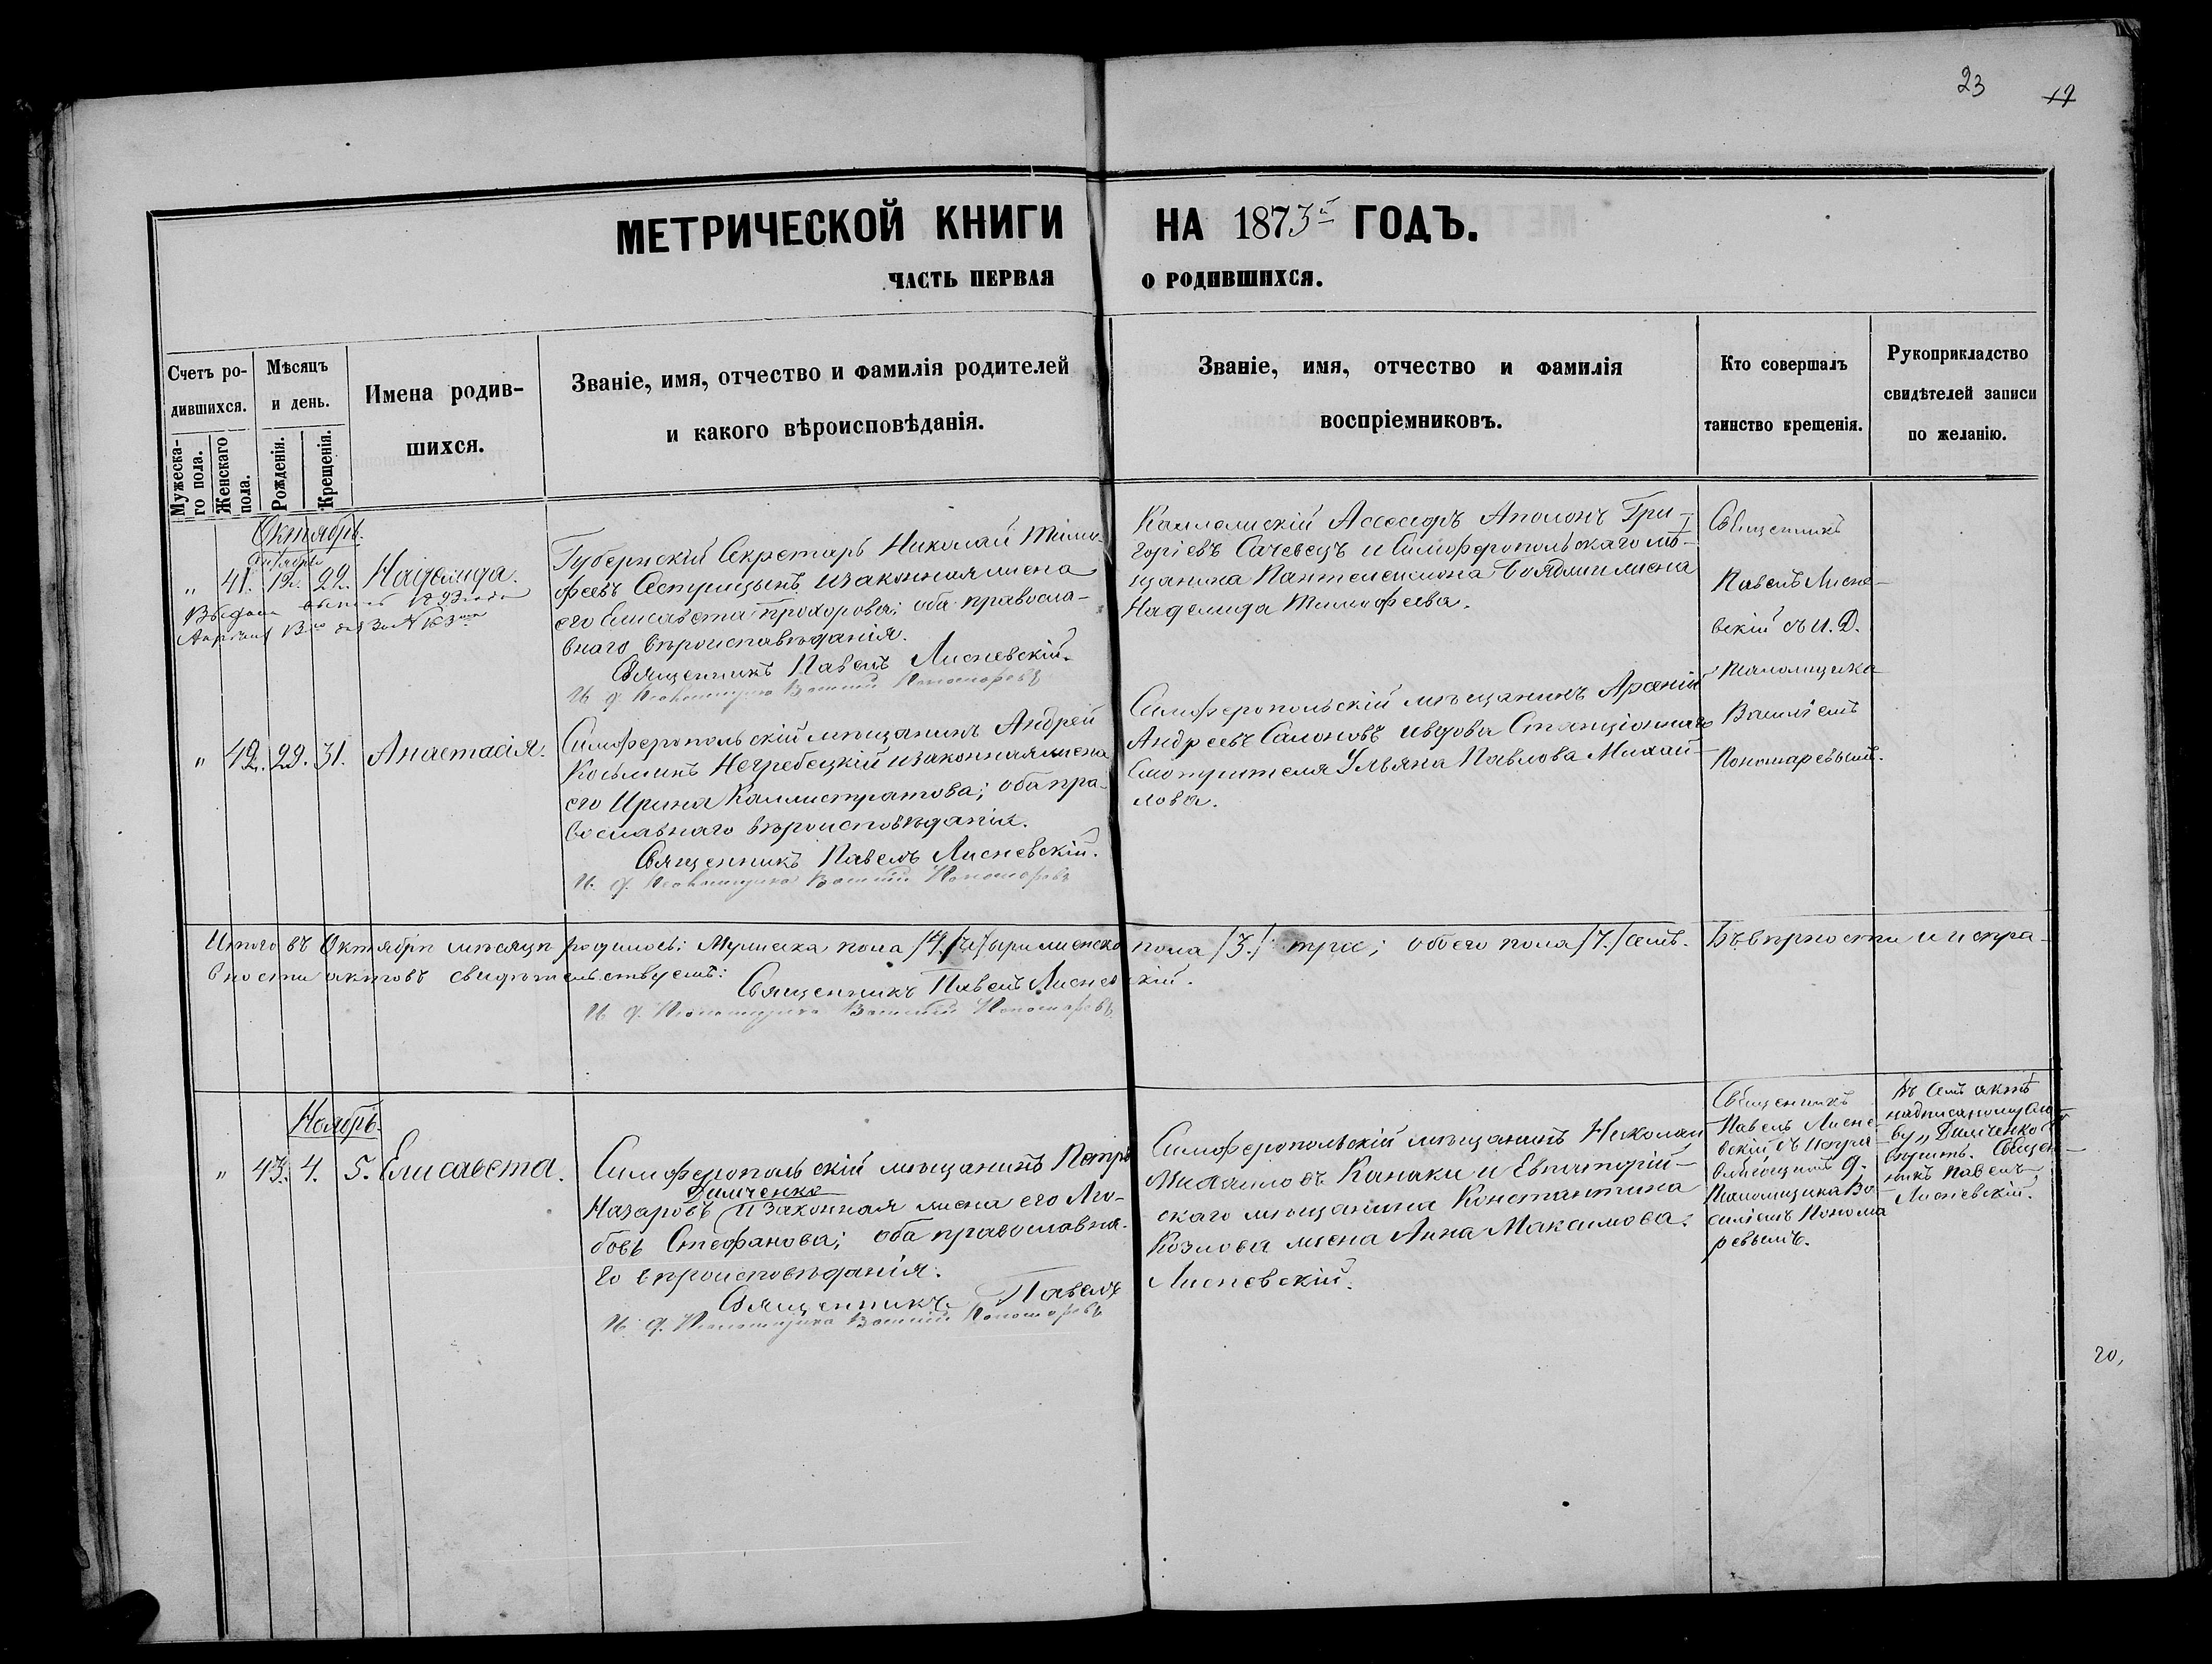 23 19
МЕТРИЧЕСКОЙ КНИГИ НА 1873й ГОДЪ.
ЧАСТЬ ПЕРВАЯ О РОДИВШИХСЯ.
Счетъ ро-
дившихся.
Мужеска-
го пола.
Женскаго
пола.
Мѣсяцъ
и день.
Рожденія.
Крещенія.
Имена родив-
шихся.
Званіе, имя, отчество и фамилія родителей
и какого вѣроисповѣданія.
Званіе, имя, отчество и фамилія
воспріемниковъ.
Кто совершалъ
таинство крещенія.
Рукоприкладство
свидѣтелей записи
по желанію.
Октябрь.
" 41. 12. 22. Надежида.
Губернскій Секретарь Николай Тимо-
феевъ изаконная жена
его Елисавета Прохорова; оба правосла-
внаго вѣроисповѣданія.
Священникъ Павелъ Лисневскій.
И. д. Псаломщика Василій Пономаревъ
Коллежскій Асессоръ Аполонъ Гри-
горіевъ Сачевецъ и Симферопольскаго мѣ-
щанина Пантелеимона жена
Надежида Тимофеева.
Священникъ
Павелъ Лисне-
вскій съ И. Д.
Псаломщика
Василіемъ
Пономаревымъ.
" 42. 29. 31. Анастасія.
Симферопольскій мѣщанинъ Андрей
Косьминъ Негребецкій изаконная жена
его Ирина Каллистратова; оба пра-
вославнаго вѣроисповѣданія.
Священникъ Павелъ Лисневскій.
И. д. Псаломщика Василій Пономаревъ
Симферопольскій мѣщанинъ
Андреевъ Салоновъ ивдова Станціоннаго
Смотрителя Ульяна Павлова Михай-
лова.
Итого въ Октябрѣ мѣсяцѣ родилось: Мужеска пола /4./ четыри женска пола /3./ три; обоего пола /7./ семь. Въ вѣрности и испра-
вности актовъ свидѣтельствуемъ: Священникъ Павелъ Лисневскій.
И. д. Псаломщика Василій Пономаревъ
Ноябрь.
" 43. 4. 5. Елисавета.
Симферопольскій мѣщанинъ Петръ
Димченко
Назаровъ изаконная жена его Лю-
бовь Стефанова; оба православна-
го вѣроисповѣданія.
Священникъ Павелъ Лисневскій.
И. д. Псаломщика Василій Пономаревъ
Симферопольскій мѣщанинъ Николай
Михаиловъ Канаки и Евпаторій-
скаго мѣщанина Константина
Козлова жена Анна Максимова.
Священникъ
Павелъ Лисне-
вскій съ
д.
Псаломщика Ва-
силіемъ Понома
ревымъ.
Въ семъ актѣ
надписаному сло-
ву "Димченко"
вѣрить. Священ-
никъ Павелъ
Лисневскій.
20,